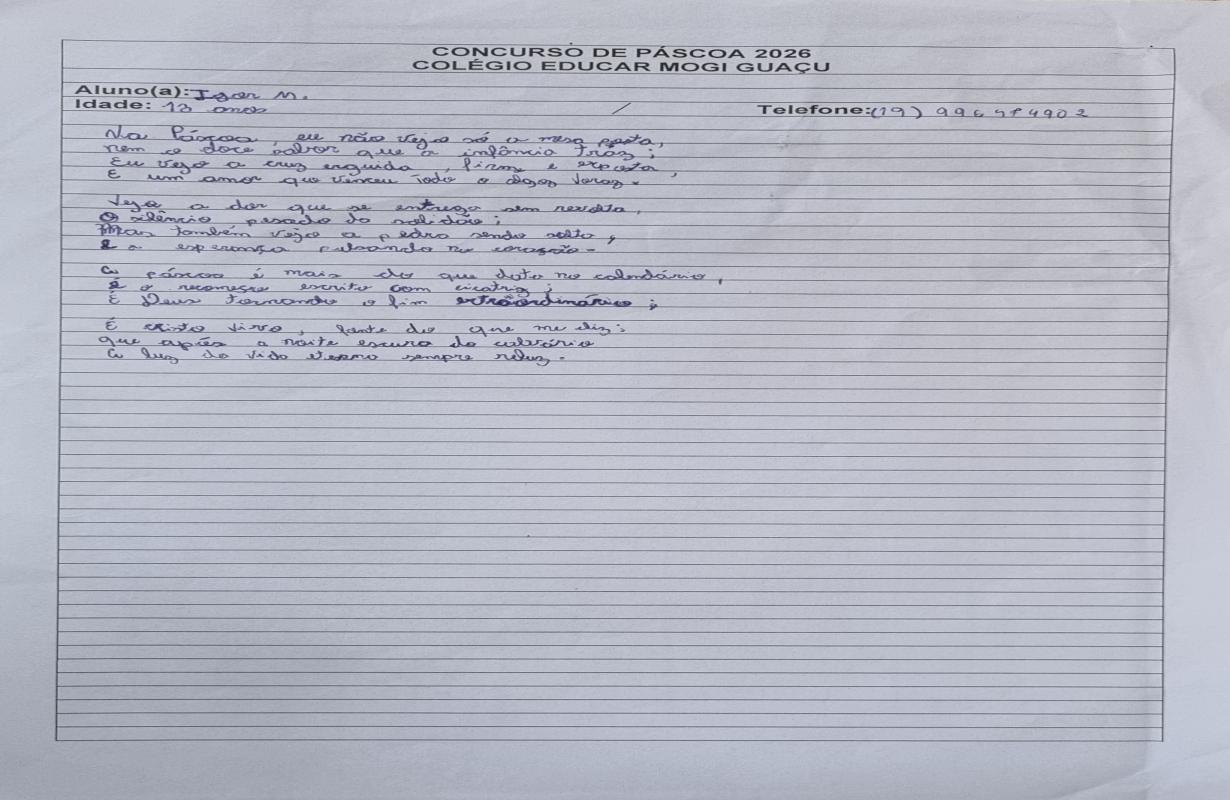 CONCURSO DE PÁSCOA 2026
COLÉGIO EDUCAR MOGI GUAÇU
Aluno(a): Igor M.
Idade: 13 anos / Telefone:(19)
Na Páscoa, eu não vejo só a mesa posta,
nem o doce sabor que a infância traz;
Eu vejo a cruz erguida, firme e exposta,
E um amor que venceu todo o algoz voraz.
Vejo a dor que se entrega sem revolta,
O silêncio pesado da solidão;
Mas também vejo a pedra sendo solta,
E a esperança pulsando no coração.
A páscoa é mais do que data no calendário,
É o recomeço escrito com cicatriz;
É Deus tornando o fim extraordinário;
É cristo vivo, fonte do que me diz:
que após a noite escura do calvário
A luz da vida eterna sempre reluz.